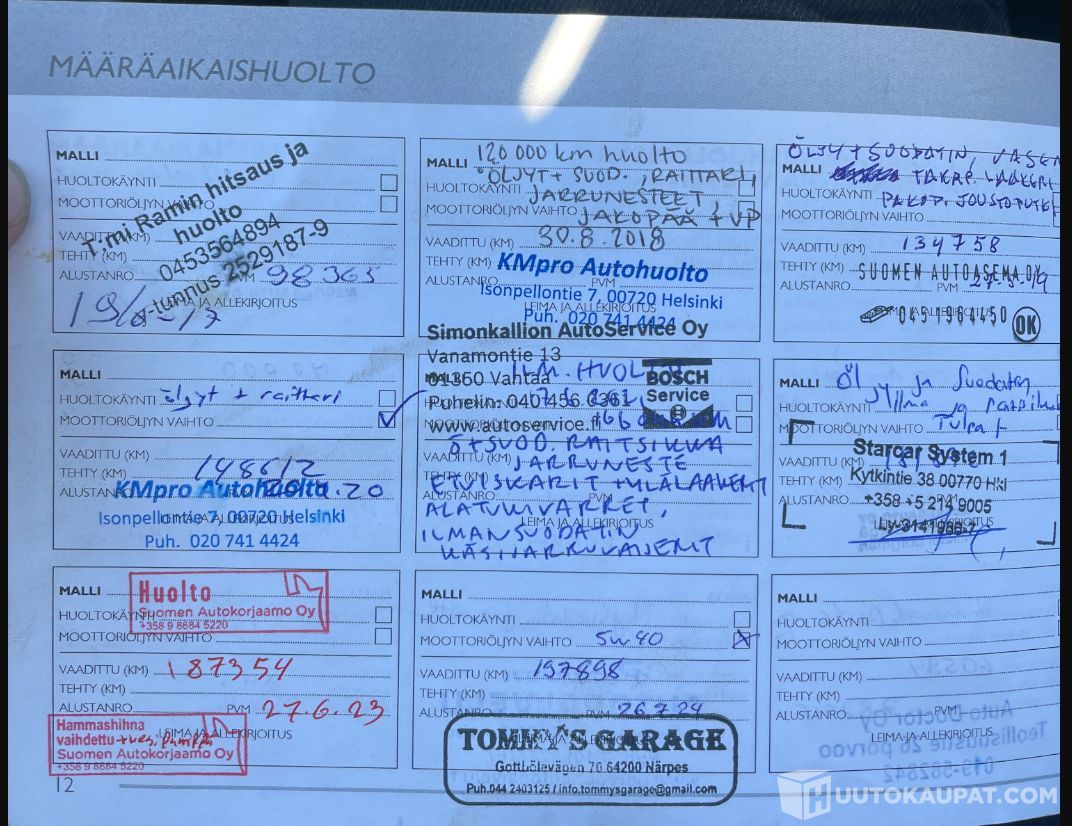 MÄÄRÄAIKAISHUOLTO
MALLI
HUOLTOKÄYNTI
MOOTTORIÖLJYN VAIHTO
VAADITTU (KM)
TEHTY (KM)
ALUSTANRO PVM 98365
LEIMA JA ALLEKIRJOITUS
T:mi Ramin hitsaus ja
huolto
0453564894
y-tunnus 2529187-9
MALLI 120 000 km huolto
HUOLTOKÄYNTI ÖLJYT + SUOD., RAITTARI,
JARRUNESTEET,
MOOTTORIÖLJYN VAIHTO JAKOPÄÄ + VP
VAADITTU (KM) 30.8.2018
TEHTY (KM) KMpro Autohuolto
ALUSTANRO PVM
Isonpellontie 7, 00720 Helsinki
LEIMA JA ALLEKIRJOITUS
Puh. 020 741 4424
ÖLJYT + SUODATIN,
MALLI TAKAP.
HUOLTOKÄYNTI PAKOP. JOUSTOPUTKI
MOOTTORIÖLJYN VAIHTO
VAADITTU (KM) 134758
TEHTY (KM) SUOMEN AUTOASEMA OY
ALUSTANRO PVM
LEIMA JA ALLEKIRJOITUS
0451964450 OK
MALLI
HUOLTOKÄYNTI öljyt + raittari
MOOTTORIÖLJYN VAIHTO
VAADITTU (KM)
TEHTY (KM) 148612
ALUSTANRO
KMpro Autohuolto
Isonpellontie 7, 00720 Helsinki
LEIMA JA ALLEKIRJOITUS
Puh. 020 741 4424
Simonkallion AutoService Oy
Vanamontie 13
01350 Vantaa
Puhelin: 040 456 6361
www.autoservice.fi
BOSCH
Service
MALLI
ILM. HUOLTO
HUOLTOKÄYNTI
MOOTTORIÖLJYN VAIHTO
Ö+SUOD. RAITSIKKA
VAADITTU (KM) JARRUNESTE
TEHTY (KM)
ETUISKARIT + YLÄLAAKERIT
ALUSTANRO PVM
ALATUKIVARRET,
LEIMA JA ALLEKIRJOITUS
ILMANSUODATIN
KÄSIJARRUVAIJERIT
MALLI Öljy ja Suodatin
HUOLTOKÄYNTI Ilma ja
MOOTTORIÖLJYN VAIHTO Tulpat
VAADITTU (KM)
TEHTY (KM)
ALUSTANRO
Starcar System 1
Kytkintie 38 00770 Hki
+358 45 214 9005
LEIMA JA ALLEKIRJOITUS
MALLI
HUOLTOKÄYNTI
MOOTTORIÖLJYN VAIHTO
Huolto
Suomen Autokorjaamo Oy
+358 9 8684 5220
VAADITTU (KM) 187354
TEHTY (KM)
ALUSTANRO PVM 27.6.23
LEIMA JA ALLEKIRJOITUS
Hammashihna
vaihdettu + ves. pumppu
Suomen Autokorjaamo Oy
+358 9 8684 5220
MALLI
HUOLTOKÄYNTI
MOOTTORIÖLJYN VAIHTO 5w40
VAADITTU (KM) 197898
TEHTY (KM)
ALUSTANRO PVM 26.7.24
TOMMY'S GARAGE
Gottbölevägen 70 64200 Närpes
Puh.044 2403125 / info.tommysgarage@gmail.com
MALLI
HUOLTOKÄYNTI
MOOTTORIÖLJYN VAIHTO
VAADITTU (KM)
TEHTY (KM)
ALUSTANRO PVM
LEIMA JA ALLEKIRJOITUS
12
HUUTOKAUPAT.COM